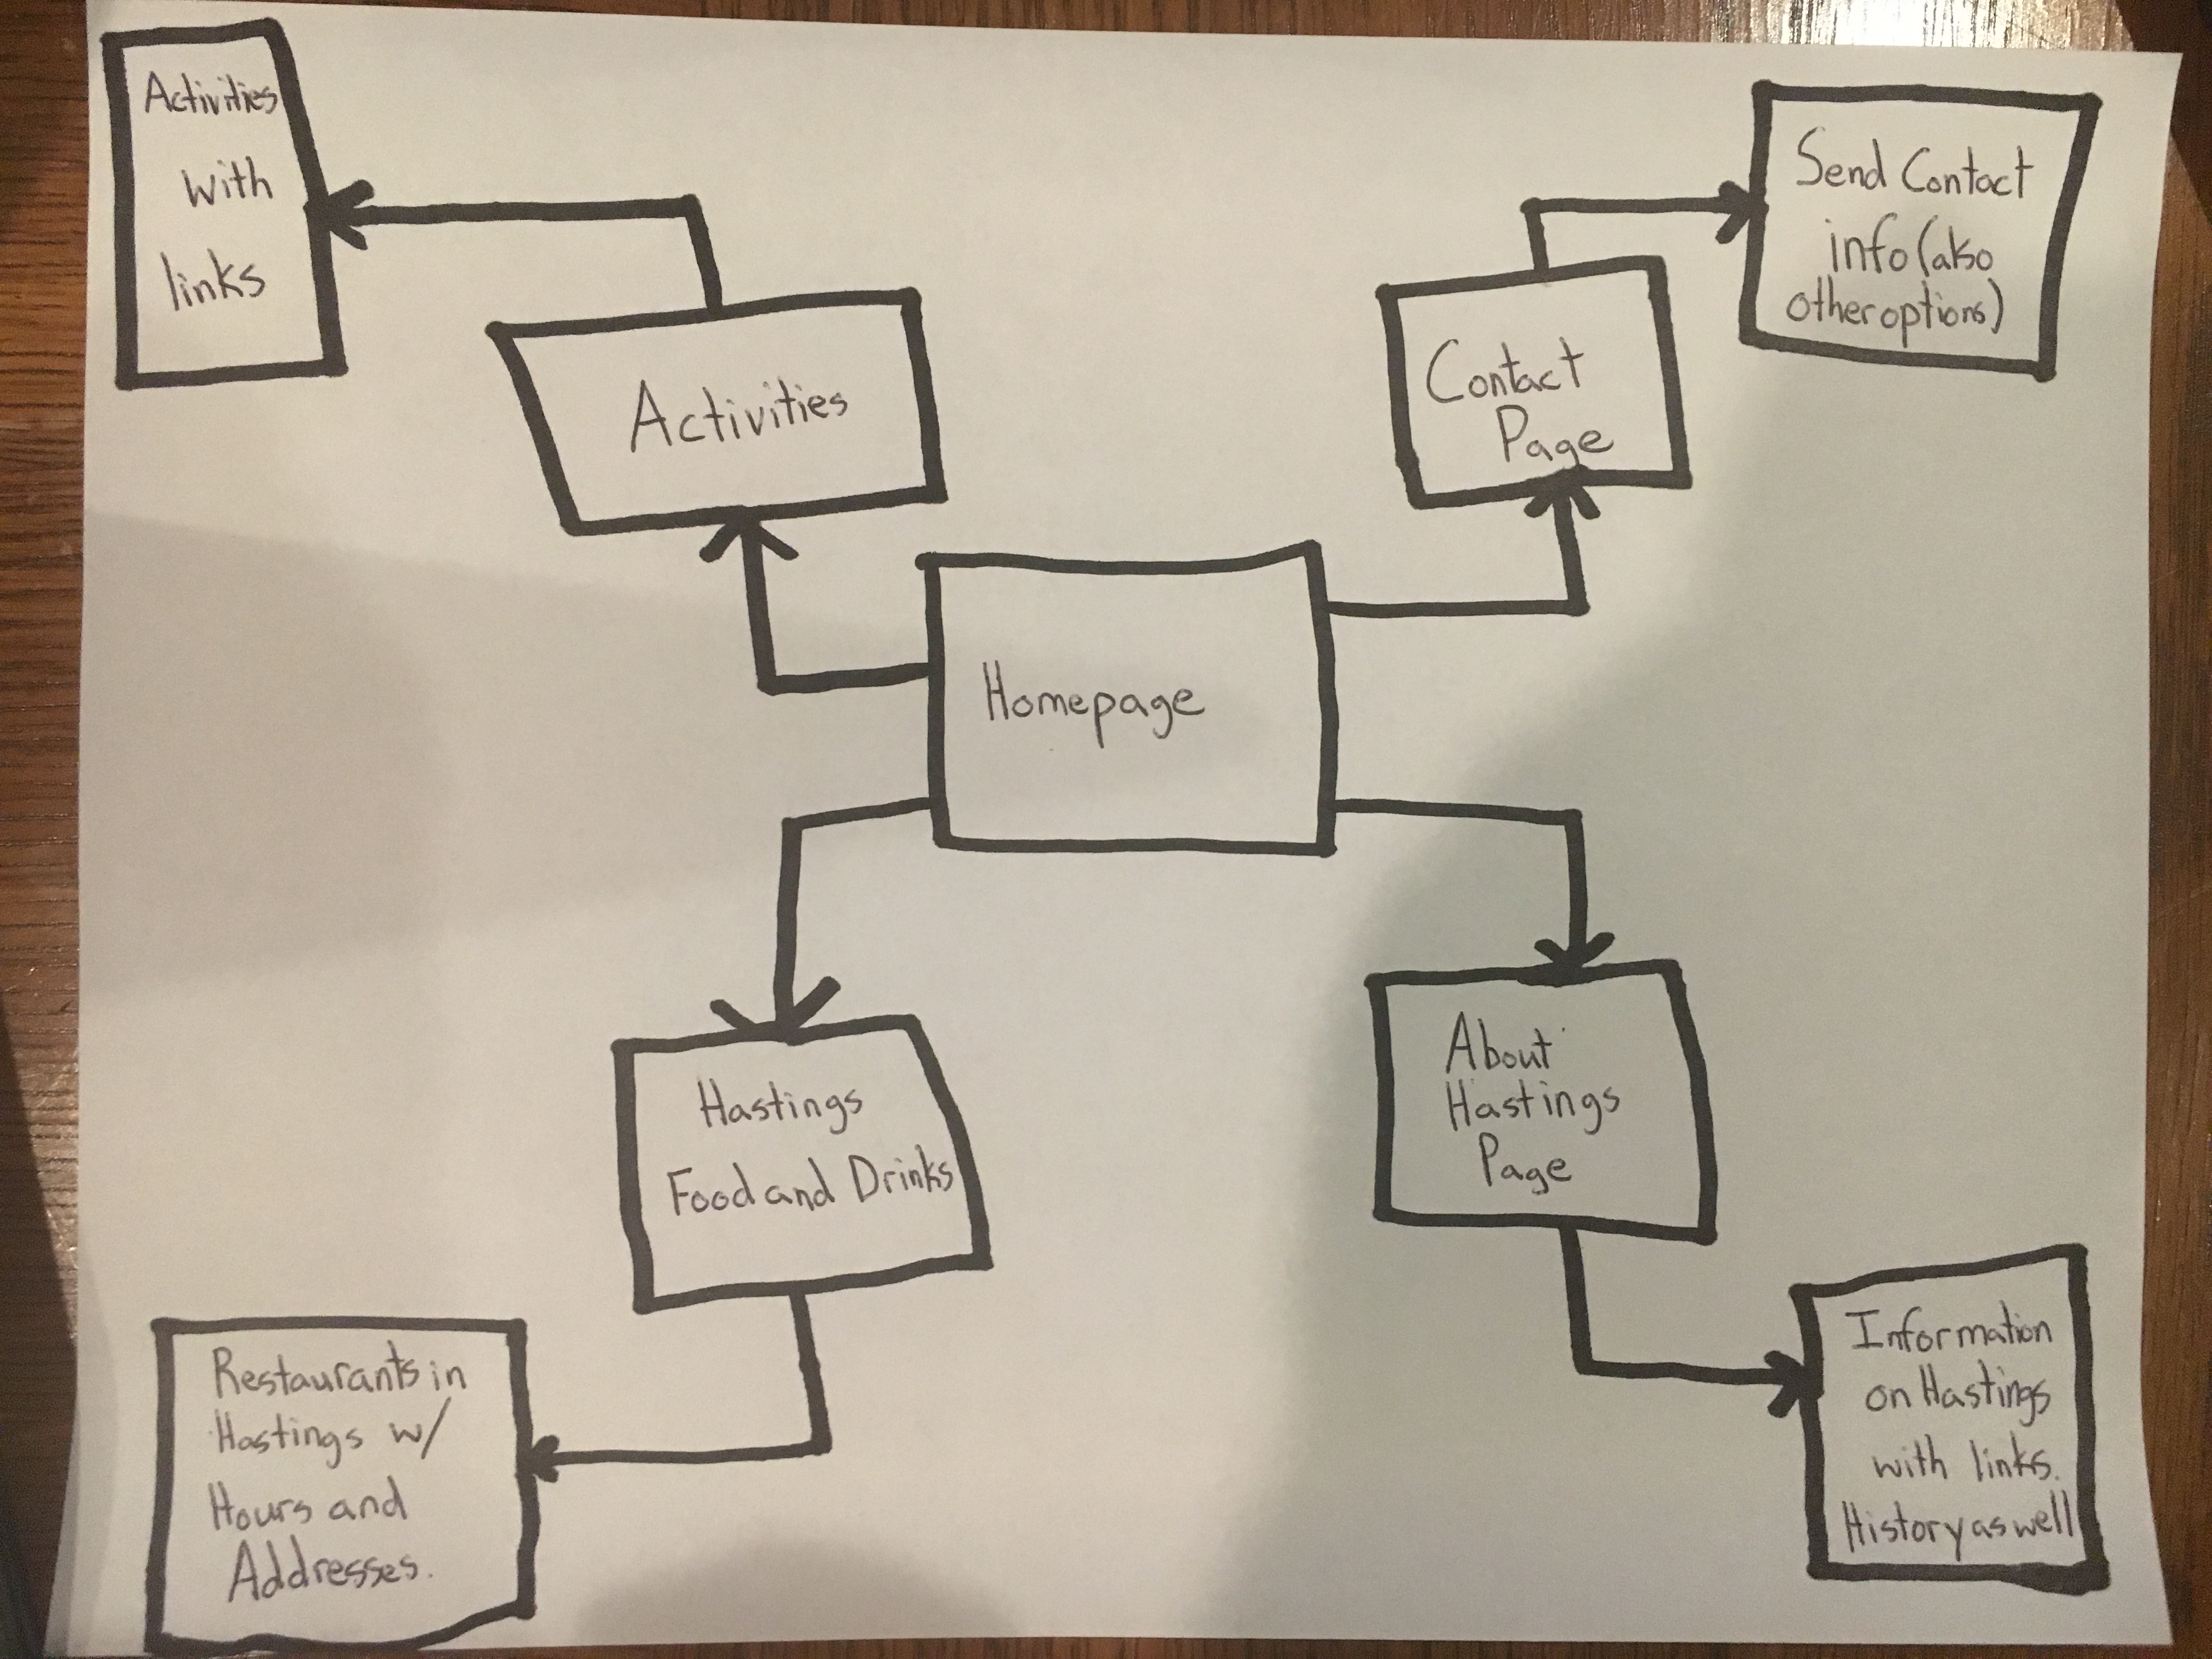 Activities
with
links
Activities
Contact
Page
Send Contact
info (also
other options)
Homepage
Hastings
Food and Drinks
About
Hastings
Page
Restaurants in
Hastings w/
Hours and
Addresses.
Information
on Hastings
with links.
History as well